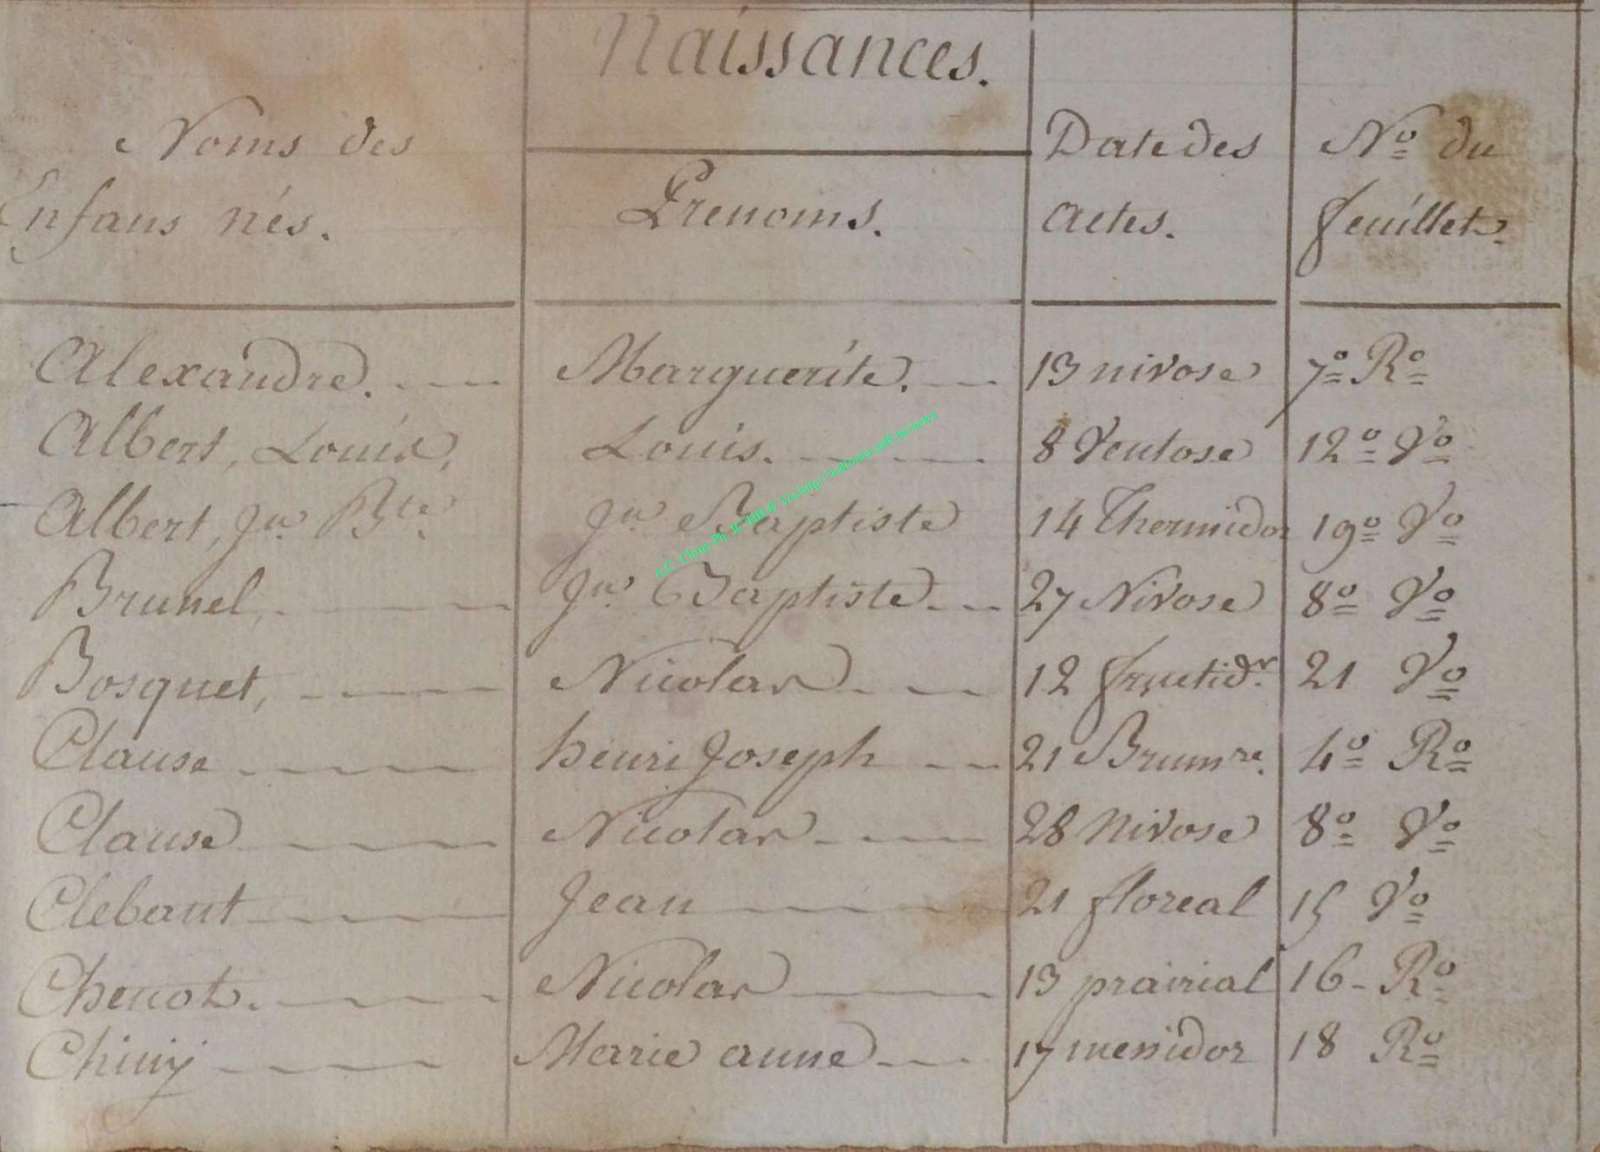 Naissances.
Noms des Enfans nés. Prenoms. Date des actes. Nº du feuillet.
Alexandre. Marguerite. 13 nivose 7º Rº
Albert, Louis, Louis. 8 Ventose 12º Vº
Albert, Jn. Bte. Jn. Baptiste 14 Thermidor 19º Vº
Brunel, Jn. Baptiste 27 Nivose 8º Vº
Bosquet, Nicolas 12 fructidr. 21 Vº
Clause henri Joseph 21 Brumre. 4º Rº
Clause Nicolas 28 Nivose 8º Vº
Clebant Jean 21 floreal 15 Vº
Chenot. Nicolas 13 prairial 16 - Rº
Chiny Marie anne 17 messidor 18 Rº